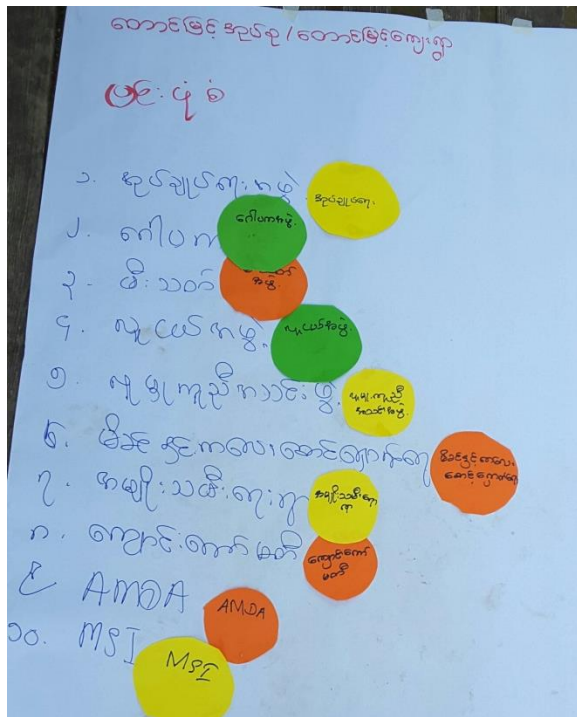 တောင်မြင့်အုပ်စု / တောင်မြင့်ကျေးရွာ
ပုံစံ
၁. အုပ်ချုပ်ရေးအဖွဲ့ အုပ်ချုပ်ရေး
၂. ဂေါပက ဂေါပကအဖွဲ့
၃. မီးသတ် အဖွဲ့
၄. လူငယ်အဖွဲ့ လူငယ်အဖွဲ့
၅. လူမှုကူညီအသင်းဖွဲ့ လူမှုကူညီ အသင်းအဖွဲ့
၆. မိခင်နှင့်ကလေးစောင့်ရှောက်ရေး မိခင်နှင့်ကလေး စောင့်ရှောက်ရေး
၇. အမျိုးသမီးရေးရာ အမျိုးသမီးရေးရာ
၈. ကျောင်းကော်မတီ ကျောင်းကော် မတီ
၉ AMDA AMDA
၁၀. MSI MSI